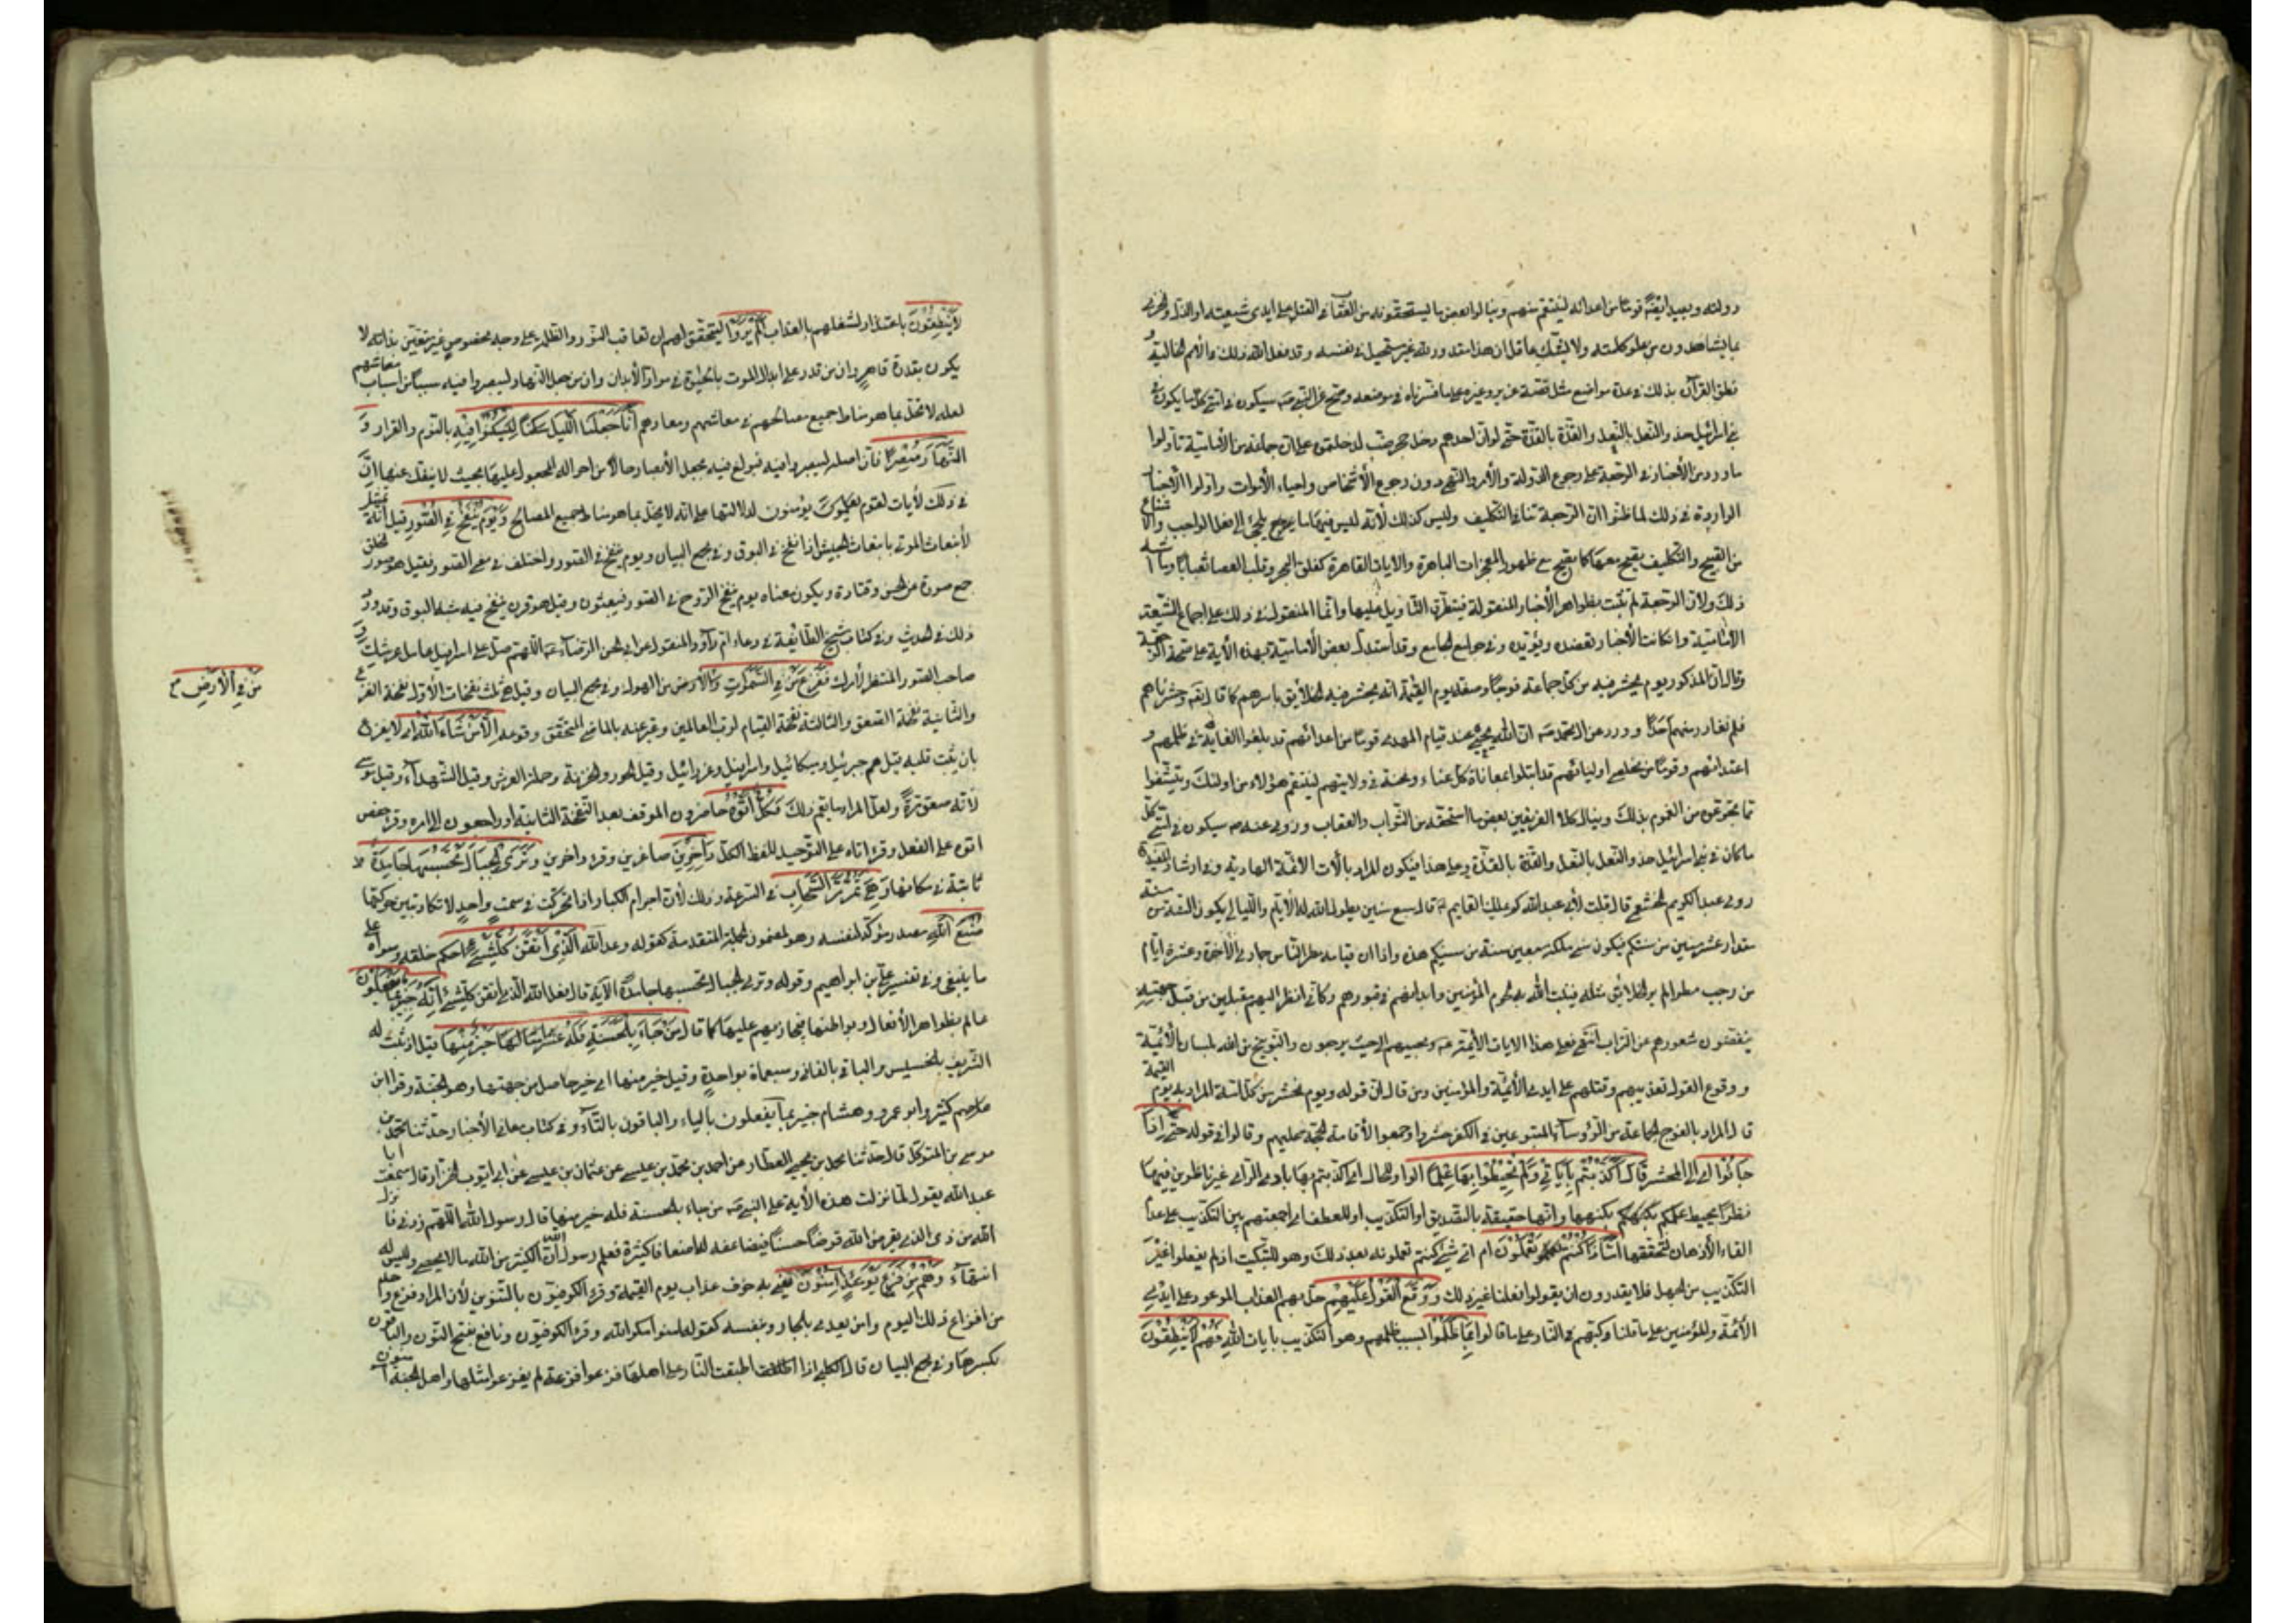 دولته ويعيد ايضًا قومًا من اعدائه لينتقم منهم وينالوا بعض ما يستحقونه من العقاب القتل على ايدى شيعته او الذل والخزى
بما يشاهدون من علو كلمته ولا يشك عاقل ان هذا مقدور لله غير مستحيل فى نفسه وقد فعل الله ذلك فى الامم الخالية و
نطق القرآن بذلك فى عدة مواضع مثل قصة عزير وغيره على ما فسرناه فى موضعه وصح عن النبى سيكون فى امتى كل ما يكون فى
بنى اسرائيل حذو النعل بالنعل والقذة بالقذة حتى لو ان احدهم دخل جحر ضب لدخلتموه على ان جماعة من الامامية تأولوا
ما ورد من الأخبار فى الرجعة على رجوع الدولة والأمر والنهى دون رجوع الأشخاص واحياء الأموات واولوا الأخبار
الواردة فى ذلك لما ظنوا ان الرجعة تنافى التكليف وليس كذلك لأنه ليس فيها ما يلجئ الى فعل الواجب والامتناع
من القبيح والتكليف يصح معها كما يصح مع ظهور المعجزات الباهرة والايات القاهرة كفلق البحر وقلب العصا ثعبانًا وما اشبه
ذلك ولان الرجعة لم تثبت بظواهر الأخبار المنقولة فيتطرق التأويل عليها وانما المعول فى ذلك على اجماع الشيعة
الامامية وان كانت الأخبار تعضده وتؤيده وفى جوامع الجامع وقد استدل بعض الأمامية بهذه الأية على صحة الرجعة
وقال ان المذكور يوم يحشر فيه من كل جماعة فوجًا وصفة يوم القيمة انه يحشر فيه الخلايق باسرهم كما قال وحشرناهم
فلم نغادر منهم احدًا وورد عن ال محمد ان الله يحيى عند قيام المهدى قومًا من اعدائهم قد بلغوا الغاية فى ظلمهم و
اعتدائهم وقومًا من مخلصى اوليائهم قد ابتلوا بمعاناة كل عناء ومحنة فى ولايتهم لينتقم هؤلاء من اولئك ويتشفوا
مما تجرعوه من الغموم بذلك وينال كلا الفريقين بعض ما استحقه من الثواب والعقاب وروى عنه سيكون فى امتى كل
ما كان فى بنى اسرائيل حذو النعل بالنعل والقذة بالقذة وعلى هذا فيكون المراد بالآيات الائمة الهادية وفى ارشاد المفيد
روى عبد الكريم الخثعمى قال قلت لأبى عبد الله كم يملك القايم قال سبع سنين يطول الله له الأيام والليالى يكون السنة من
مقدار عشر سنين من سنيكم فيكون سنى ملكه سبعين سنة من سنيكم هذه واذا ان قيامه مطر الناس جمادى الأخرة وعشرة ايام
من رجب مطرًا لم ير الخلايق مثله فينبت الله به لحوم المؤمنين وابدانهم فى قبورهم وكانى انظر اليهم مقبلين من قبل جهينه
ينفضون شعورهم من التراب انتهى فعلى هذا الايات الأئمة ومجيئهم يرجون والتوبيخ من الله بلسان الأئمة
ووقوع القول تعذيبهم وقتلهم على ايدى الأئمة والمؤمنين ومن قال ان قوله ويوم نحشر من كل امة المراد به يوم القيمة
قال المراد بالفوج الجماعة من الرؤساء المتبوعين فى الكفر حشروا وجمعوا لأقامة الحجة عليهم وقالوا فى قوله حتى اذا
جاؤا اى الى المحشر قال اكذبتم بآياتى ولم تحيطوا بها علمًا الواو للحال اى اكذبتم بها بادى الرأى غير ناظرين فيها
نظرًا يحيط علمكم بكنهها وانها حقيقة بالتصديق او التكذيب او للعطف اى اجمعتم بين التكذيب بها وعدم
القاء الأذهان لتحققها امّا ذا كنتم تعملون ام اى شئ كنتم تعملونه بعد ذلك وهو للتبكيت اذ لم يفعلوا غير
التكذيب من الجهل فلا يقدرون ان يقولوا فعلنا غير ذلك ووقع القول عليهم حل بهم العذاب الموعود على ايدى
الأئمة والمؤمنين على ما قلنا وكبهم فى النار على ما قالوا بما ظلموا بسبب ظلمهم وهو التكذيب بايات الله فهم لا ينطقون
لا ينطقون باعتذار لشغلهم بالعذاب الم يروا ليتحقق لهم ان تعاقب النور والظلم على وجه مخصوص غير متعين بذاته لا
يكون بقدرة قاهر وان من قدر على ابدال الموت بالحيوة فى مواد الأبدان وان من جعل النهار ليبصروا فيه سببًا من اسباب معاشهم
لعله لا يخل بما هو مناط جميع مصالحهم فى معاشهم ومعادهم انا جعلنا الليل ليسكنوا فيه بالنوم والقرار و
النهار مبصرًا فان اصله ليبصروا فيه فبولغ فيه بجعل الأبصار حالًا من احواله المجعول عليها بحيث لا ينفك عنها ان
فى ذلك لأيات لقوم يؤمنون لدلالتها على انه لا يخل بما هو مناط جميع المصالح ويوم ينفخ فى الصور قيل انه تمثيل
لأنبعاث الموتى بانبعاث الجيش اذا نفخ فى البوق وفى مجمع البيان ويوم ينفخ فى الصور واختلف فى معنى الصور فقيل هو صور الخلق
جمع صورة عن الحسن وقتادة ويكون معناه يوم ينفخ الروح فى الصور فيبعثون وقيل هو قرن ينفخ فيه شبه البوق وقد ورد
ذلك فى الحديث وفى كتاب شيخ الطائفة فى دعاء ام داود المنقول عن ابى الحسن الرضا اللهم صل على اسرافيل حامل عرشك و
صاحب الصور المنتظر لأمرك ففزع من فى السموات والأرض من الهول وفى مجمع البيان وقيل هى ثلث نفخات الأولى نفخة الفزع
والثانية نفخة الصعق والثالثة نفخة القيام لرب العالمين وعبر عنه بالماضى لتحقق وقوعه الا من شاء الله ان لا يفزع
بان يثبت قلبه قيل هم جبرئيل وميكائيل واسرافيل وعزرائيل وقيل الحور والخزنة وحملة العرش وقيل الشهداء وقيل موسى
لأنه صعق مرة ولعل المراد ما يعم ذلك وكل اتوه حاضرون الموقف بعد النفخة الثانية او راجعون الى امره وقرء حفص
اتوه على الفعل وقرء اتاه على التوحيد للفظ الكل داخرين صاغرين وقرء داخرين وترى الجبال تحسبها جامدة
ثابتة فى مكانها وهى تمر مر السحاب فى السرعة وذلك لأن اجرام الكبار اذا تحركت فى سمت واحد لا تكاد تبين حركتها
صنع الله مصدر مؤكد لنفسه وهو لمضمون الجملة المتقدمة كقوله وعد الله الذى اتقن كل شئ احكم خلقه وسواه على
ما ينبغى وفى تفسير على بن ابراهيم وقوله وترى الجبال تحسبها جامدة الأية قال فعل الله الذى اتقن كل شئ انه خبير بما تفعلون
عالم بظواهر الأفعال وبواطنها فيجازيهم عليها كما قال من جاء بالحسنة فله خير منها قيل اذ ثبت له
الشريف بالخسيس والباقى بالفانى وسبعمأة بواحدة وقيل خير منها اى خير حاصل من جهتها وهو الجنة وقرأ ابن
كثير وابو عمرو وهشام خبير بما يفعلون بالياء والباقون بالتاء وفى كتاب معانى الأخبار حدثنا محمد بن
موسى بن المتوكل قال حدثنا محمد بن يحيى العطار عن احمد بن محمد بن عيسى عن عثمان بن عيسى عن ابى ايوب الخزاز قال سمعت ابا
عبد الله يقول لما نزلت هذه الأية على النبى من جاء بالحسنة فله خير منها قال رسول الله اللهم زدنى فانزل
الله من ذى الذى يقرض الله قرضًا حسنًا فيضاعفه له اضعافًا كثيرة فعلم رسول الله ان الكثير من الله ما لا يحصى وليس له
انتهاء وهم من فزع يومئذ امنون يعنى به خوف عذاب يوم القيمة وقرء الكوفيون بالتنوين لأن المراد فزع واحد
من افزاع ذلك اليوم وامن يعدى بالجار وبنفسه كقوله افامنوا مكر الله وقرء الكوفيون ونافع بفتح النون والباقون
بكسرها وفى مجمع البيان قال الكلبى اذا اطبقت النار على اهلها فزعوا فزعة لم يفزعوا مثلها واهل الجنة امنون
من فى الأرض